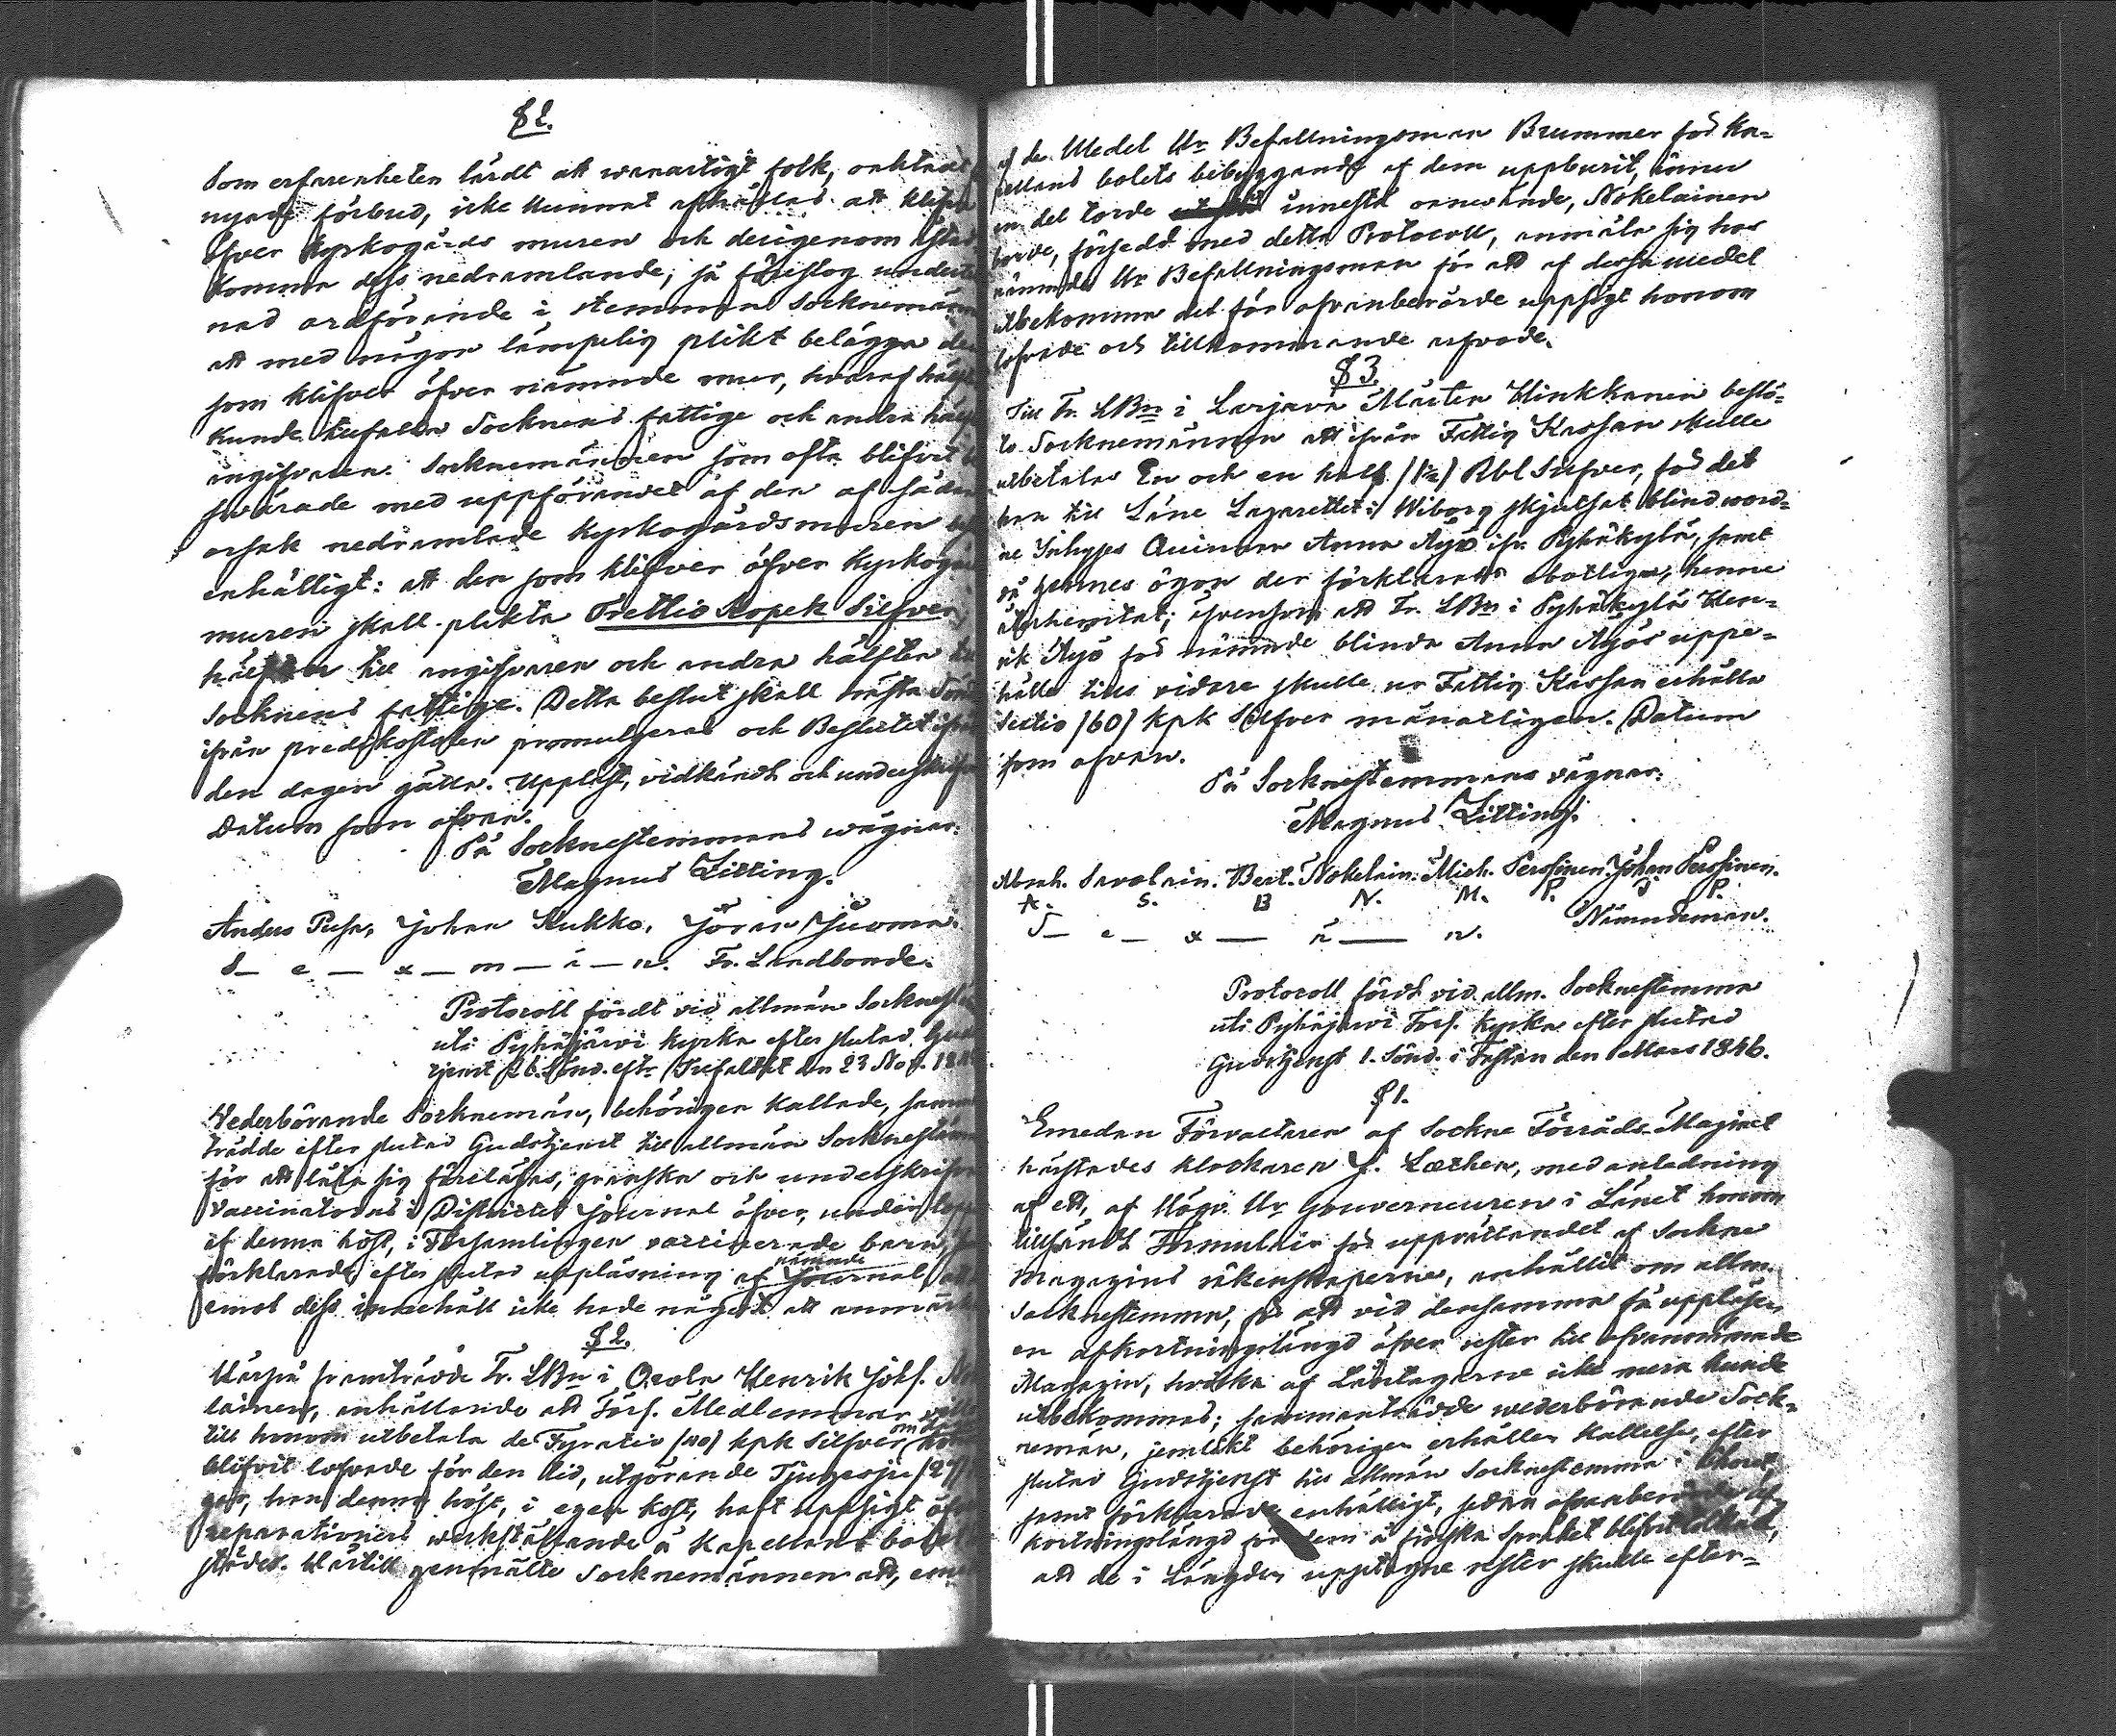 § 2.
Som erfarenheten lärdt att wanartigt folk, oaktadt
nyare förbud, icke kunnat afhållas att klifva
öfver kyrkogårds muren och derigenom åstad
komma dess nedramlande; så föreslog underte
nad ordförande i stemman Socknemän
att med någon lämpelig plikt belägga den
som klifver öfver nämnde mur, hvaraf hälft
kunde tillfalla Socknens fattige och andra hälft
angifvaren. Socknemännen som ofta blifvit be
svärade med uppförandet af den af sådan
orsak nedramlade kyrkogårdsmuren
enhälligt: att den som klifver öfver kyrkogårds
muren skall plikta Trettio Kopek Silfver,
hälften till angifvaren och andra hälften till
Socknens fattige. Detta beslut skall nästa Sön
ifrån predikostolen promulgeras och Beslutet ifrån
den dagen gälla. Uppläst, vidkändt och underskrifvet
Datum som ofvan.
På Socknestemmans wägnar:
Magnus Zitting.
Anders Pusa, Johan Kukko, Jöran Juoma.
S— e — x — m — ä — n. Fr. Landbonde.
Protocoll fördt vid allmän Socknestem
uti Pyhäjärvi kyrka efter slutad Guds
tjenst 26. Sönd. eftr Trefaldht den 23 Nov. 184
Vederbörande Socknemän, behörigen kallade, samman
trädde efter slutad Gudstjenst till allmän Socknestäm
för att låta sig föreläsas, granska och underskrifva
Vaccinatorns i Districtet journal öfver, under lopp
af denna höst, i Församlingen vaccinerade barn,
förklarade efter slutad uppläsning af nämnde Journal, att
emot dess innehåll icke hade något att anmärka
§ 2.
Härpå framträdde Fr. LBn i Orola Henrik Johs. No
lainen, anhållande att Förs. Medlemmar ville
till honom utbetala de Fyratio (40) kpk Silfver om dag
blifvit lofvade för den tid, utgörande Tjugesju (27)
gar, han denna höst, i egen kost, haft uppsigt öf
reparationers werkställande å Kapellans bol
stället. Härtill genmälte Socknemännen att, eme
af de Medel Hr Befallningsman Brummer för Ka-
pellans bolets bebyggande af dem uppburit, ännu
en del torde innestå oanvände, Nokelainen
borde, försedd med detta Protocoll, anmäla sig hos
nämnde Hr Befallningsman för att af dessa medel
utbekomma det för ofvanberörde uppsigt honom
lofvade och tillkommande arfvode.
§ 3.
Till Fr. LBn i Larjava Mårten Hinkkanen beslö-
to Socknemännen att ifrån Fattig Kassan skulle
utbetalas En och en half (1½) Rbl Silfver, för det
han till Läne Lazarettet i Wiborg skjutsat blind word-
ne Inhyses Qvinnan Anna Äyjö ifr. Pyhäkylä, samt
då hennes ögon der förklarats obotliga, henne
återhemtat; äfvensom att Fr. LBn i Pyhäkylä Hen-
rik Äyjö för nämnde blinda Anna Äyjös uppe-
hälle tills vidare skulle ur Fattig Kassan erhålla
Sextio (60) kpk Silfver månatligen. Datum
som ofvan.
På Socknestemmans vägnar:
Magnus Zitting.
Abrah. Savolain. Bert. Nokelain. Mich. Perssinen. Johan Perssinen.
A. S. B N. M. P. J. P.
S— e— x — ä — n. Nämndeman.
Protocoll fördt vid allm. Socknestemma
uti Pyhäjärvi Förs. kyrka efter slutad
Gudstjenst 1. Sönd. i Fastan den 1 Mars 1846.
§ 1.
Emedan Förvaltaren af Sockne Förråds Maginet
härstädes klockaren J. Læthen, med anledning
af ett, af Högv. Hr Gouverneuren i Länet honom
tillsändt Formulair för upprättandet af Sockne
Magazins räkenskaperne, anhållit om allm.
Socknestemma, för att vid densamma få uppläsa
en afkortningslängd öfver rester till ofvannämnde
Magazin, hvilka af Låntagarne icke mera kunde
utbekommas; sammanträdde wederbörande Sock-
nemän, jemlikt behörigen erhållen Kallelse, efter
slutad Gudstjenst till allmän Socknestemma i Choret
samt förklarade enhälligt, sedan ofvanberörde af-
kortningslängd för dem å finska Språket blifvit tolkad,
att de i Längden upptagne rester skulle efter-